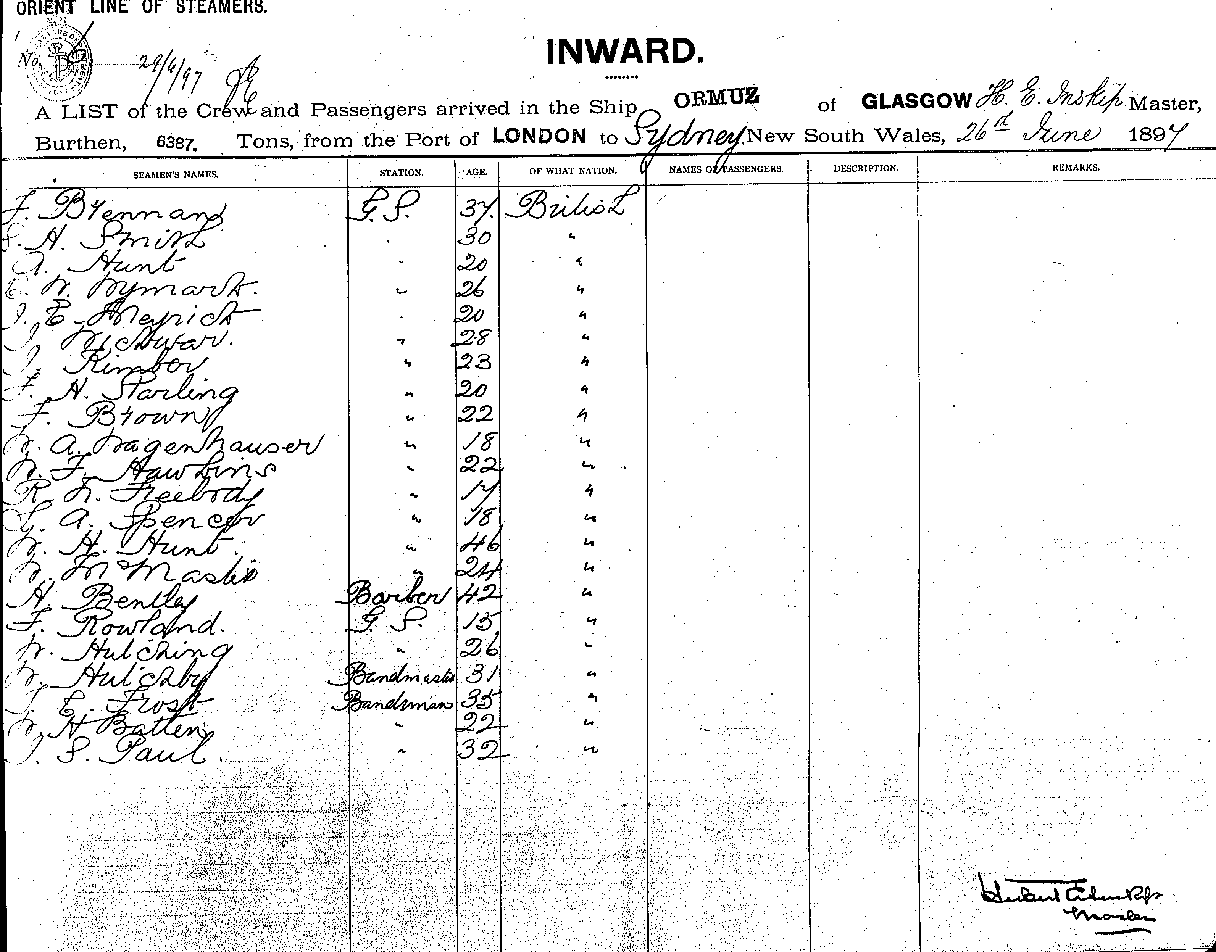 ORIENT LINE OF STEAMERS.
INWARD.
No. 29/6/97
A LIST of the Crew and Passengers arrived in the Ship ORMUZ of GLASGOW H. E. Inskip Master,
Burthen, 6387. Tons, from the Port of LONDON to Sydney, New South Wales, 26th June 1897
SEAMEN'S NAMES. STATION. AGE. OF WHAT NATION. NAMES OF PASSENGERS. DESCRIPTION. REMARKS.
F. Brennan G.S. 37 British
H. Smith " 30 "
A. Hunt " 20 "
W. Wymark. " 26 "
E. Meyrick " 20 "
" 28 "
J. Kimber " 23 "
F. H. Starling " 20 "
F. Brown " 22 "
W. A. Wagenhauser " 18 "
W. F. Hawkins " 22 "
R. W. Freebody " 17 "
G. A. Spencer " 18 "
W. H. Hunt. " 46 "
W. McMaster " 24 "
H. Bentley Barber 42 "
F. Rowland. G S 15 "
W. Hutching " 26 "
W. Hutchby Bandmaster 31 "
J. E. Frost Bandsman 35 "
W. H Batten " 22 "
J. S. Paul. " 32 "
Master